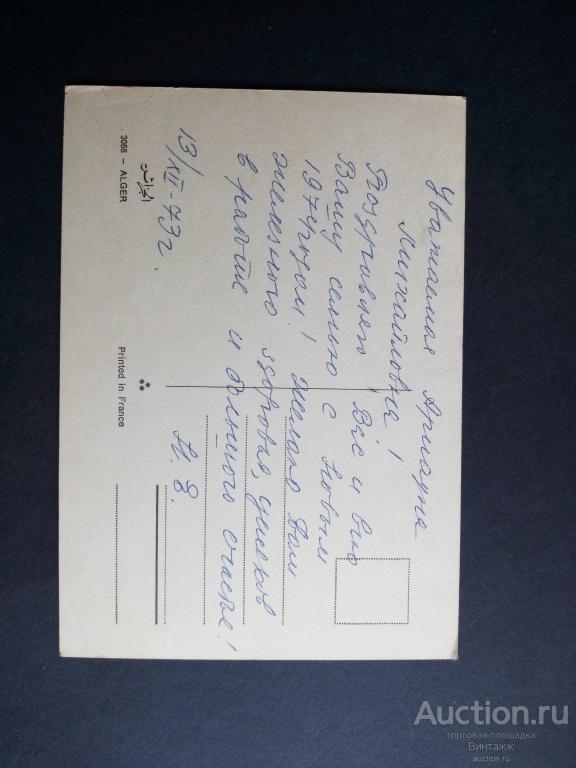 Уважаемая Ариадна
Михайловна!
Поздравляю Вас и всю
Вашу семью с Новым
1974 годом! Желаю Вам
железного здоровья, успехов
в работе и большого счастья!
13/XII-73г.
الجزائر
3068 – ALGER
Printed in France
Auction.ru
торговая площадка
Винтажж
auction.ru